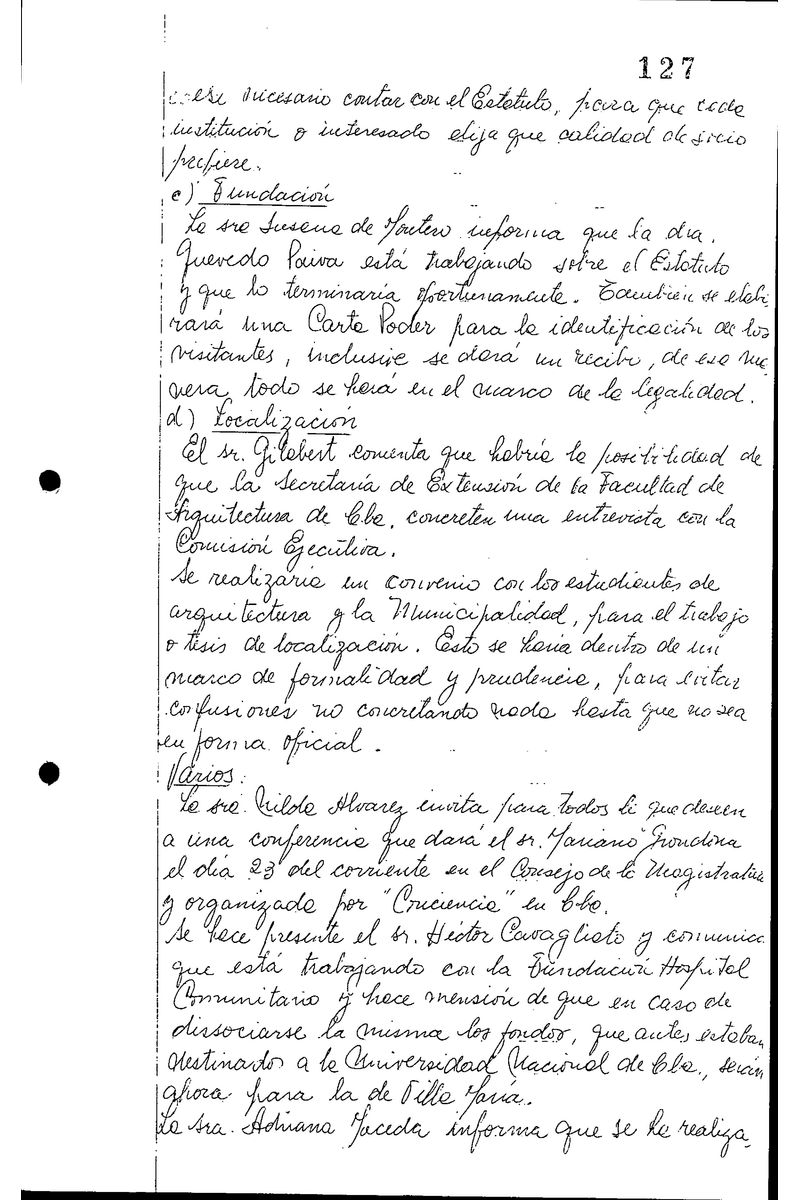 127
ese necesario contar con el Estatuto, para que cada
institución o interesado elija que calidad de socio
prefiere.
c) Fundación
La sra Susana de Montero informa que la dra.
Quevedo Paiva está trabajando sobre el Estatuto
y que lo terminaría oportunamente. También se elabo
rará una Carta Poder para la identificación de los
visitantes, inclusive se dará un recibo, de esa ma
nera todo se hará en el marco de la legalidad.
d) Localización
El sr. Gilabert comenta que habría la posibilidad de
que la Secretaría de Extensión de la Facultad de
Arquitectura de Cba, concreten una entrevista con la
Comisión Ejecutiva.
Se realizaría un convenio con los estudiantes de
arquitectura y la Municipalidad, para el trabajo
o tesis de localización. Esto se haría dentro de un
marco de formalidad y prudencia, para evitar
confusiones no concretando nada hasta que no sea
en forma oficial.
Varios:
La sra. Nilda Alvarez invita para todos li que deseen
a una conferencia que dará el sr. Mariano Grondona
el día 23 del corriente en el Consejo de la Magistratura
y organizada por "Conciencia" en Cba.
Se hace presente el sr. Héctor Cavagliato y comunica
que está trabajando con la Fundación Hospital
Comunitario y hace mensión de que en caso de
dissociarse la misma los fondos, que antes estaban
destinados a la Universidad Nacional de Cba., serán
ahora para la de Villa María.
La sra. Adriana Maceda informa que se ha realiza